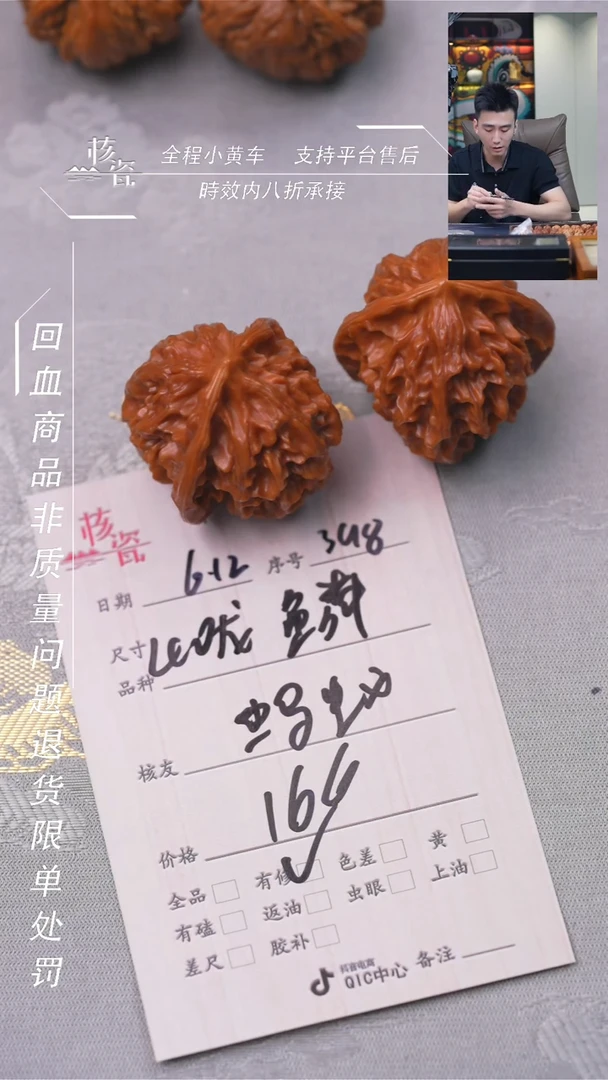 核瓷
全程小黄车 支持平台售后
時效内八折承接
回血商品非质量问题退货限单处罚
核瓷
日期 6.12 序号 398
尺寸
品种
核友
价格 166
全品 有修 色差 黄
有磕 返油 虫眼 上油
差尺 胶补
抖音电商
QIC中心 备注